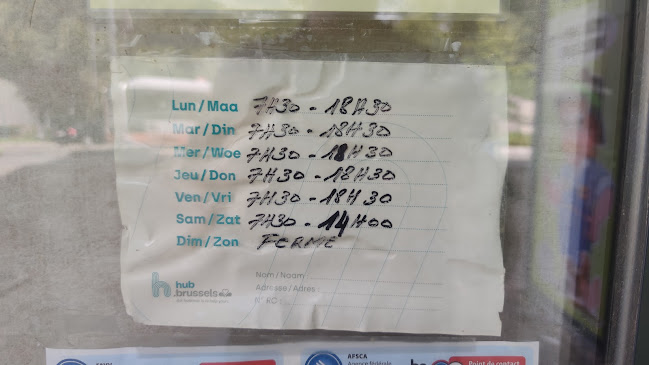 Lun / Maa 7H30 - 18H30
Mar / Din 7H30 - 18H30
Mer / Woe 7H30 - 18H30
Jeu / Don 7H30 - 18H30
Ven / Vri 7H30 - 18H30
Sam / Zat 7H30 - 14H00
Dim / Zon FERME
hub
.brussels
Nom / Naam :
Adresse / Adres :
AFSCA
Agence fédérale
Point de contact